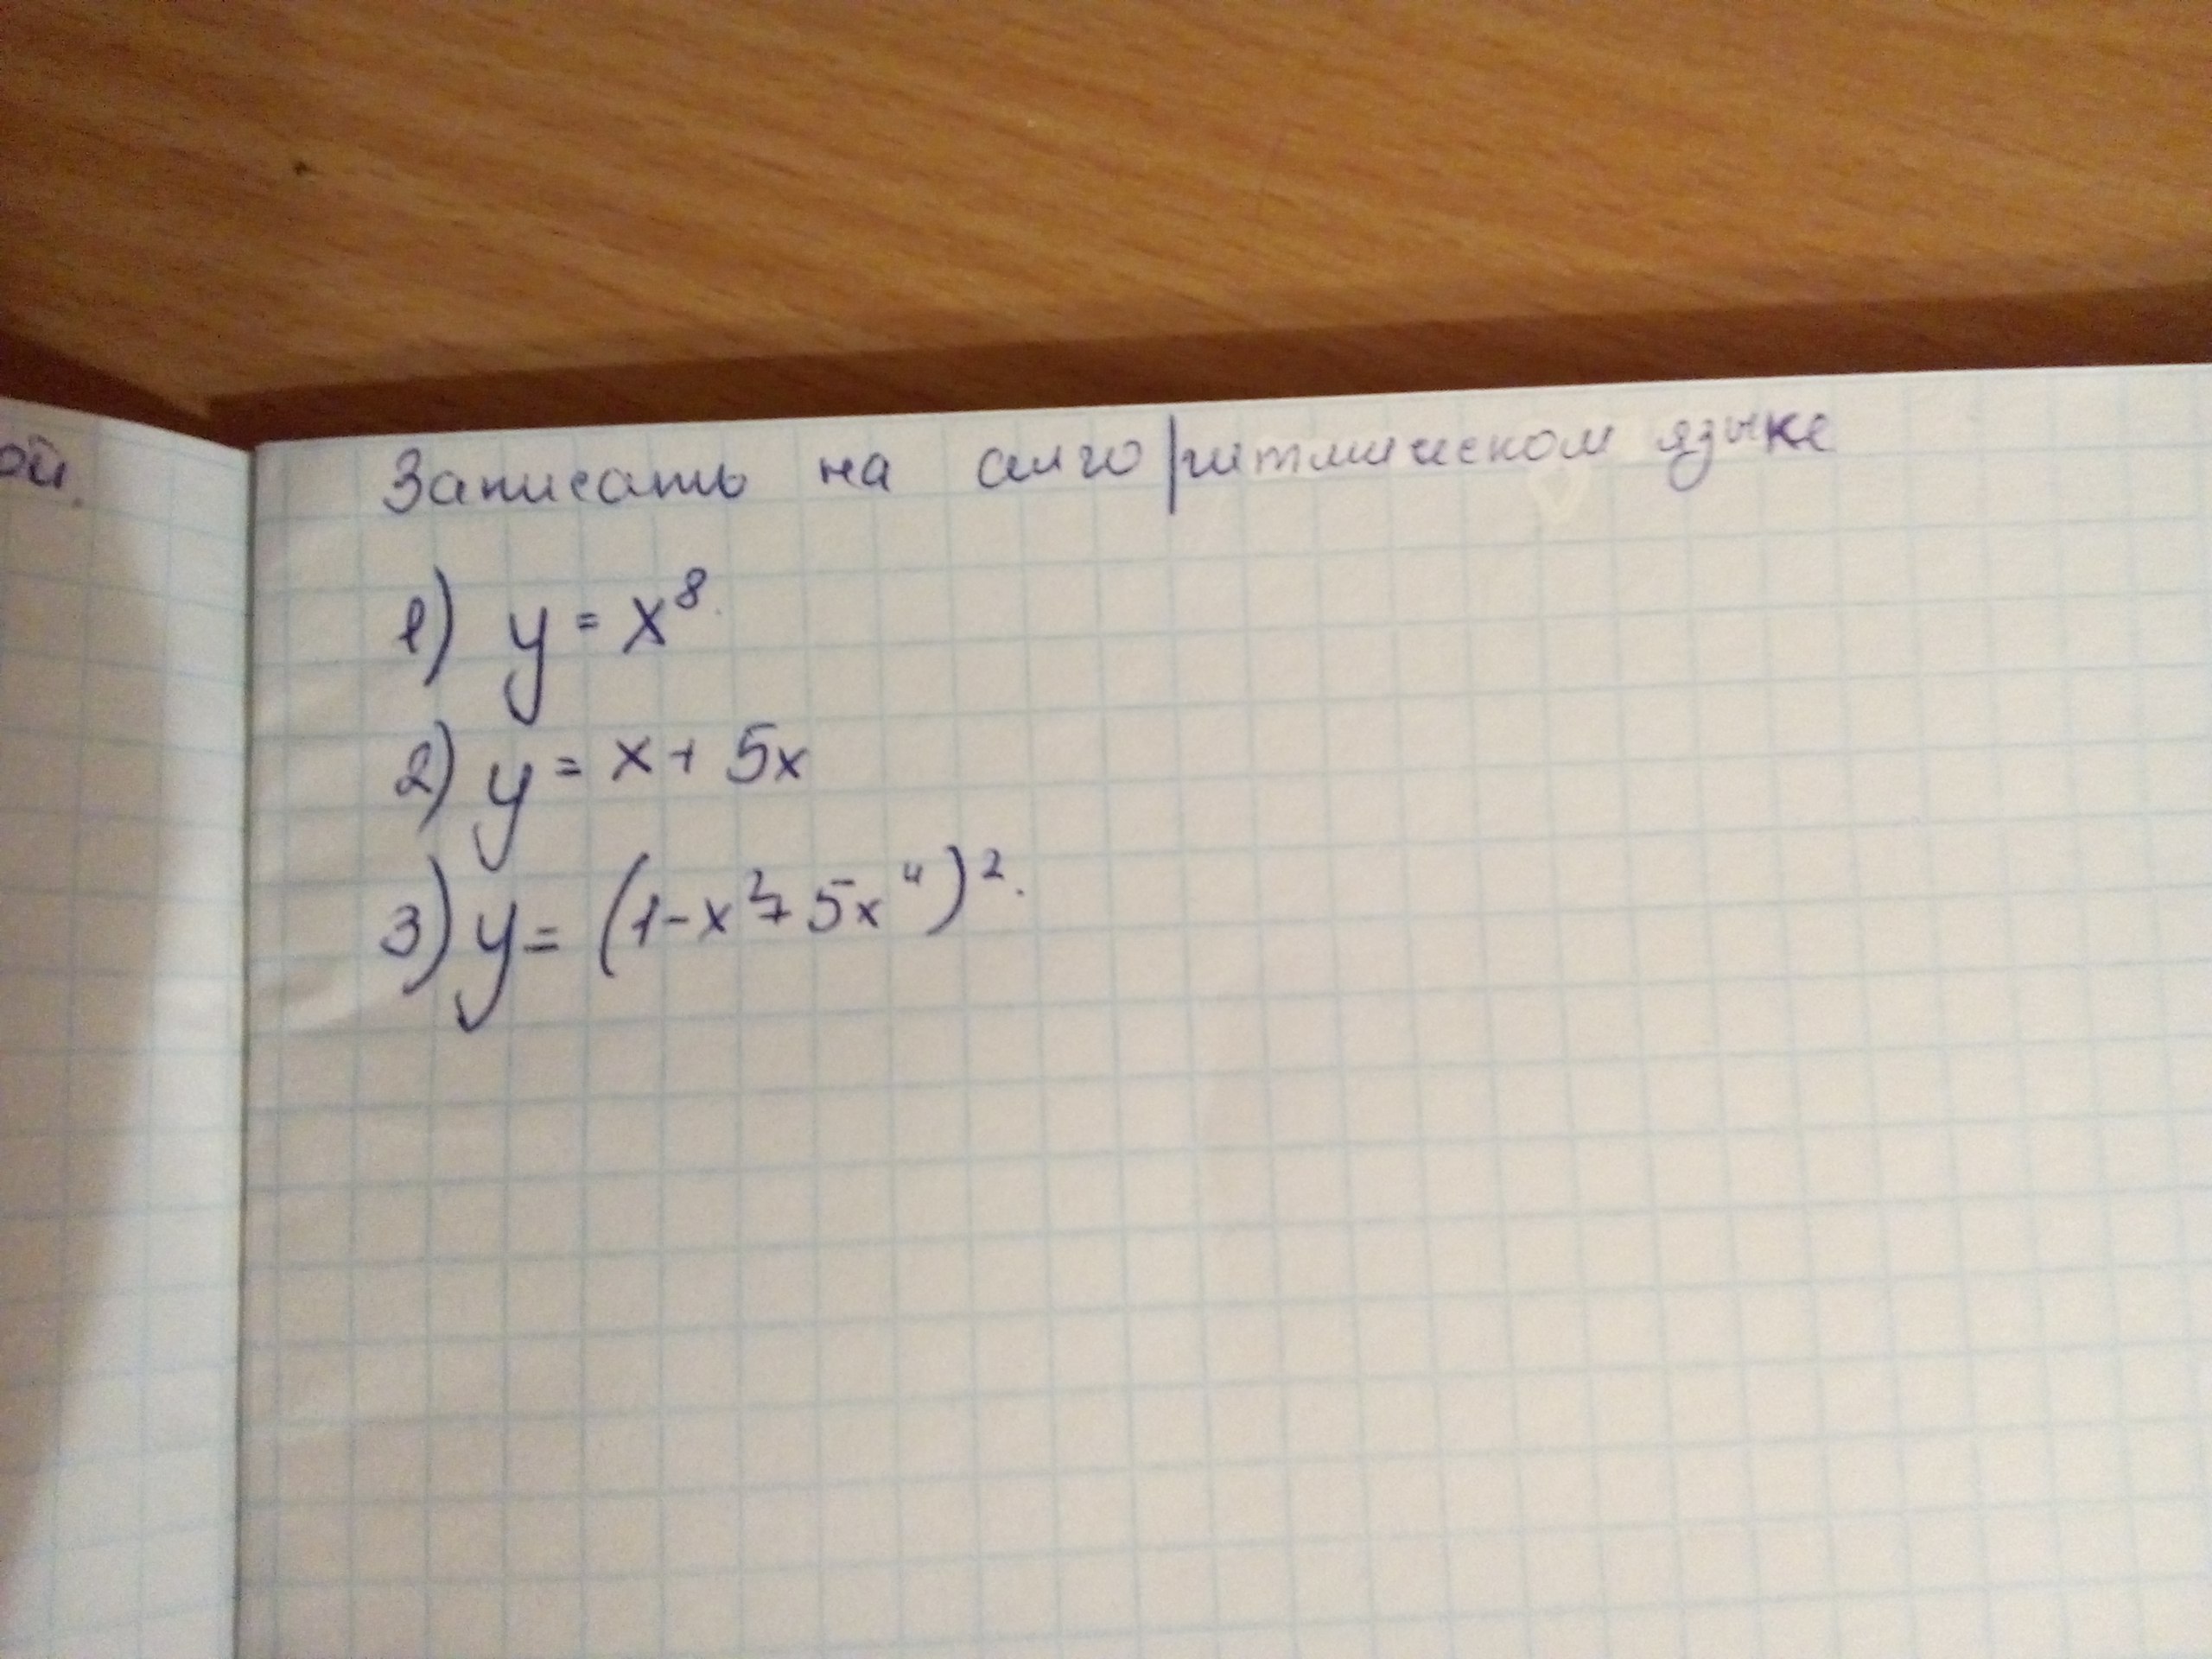 ой.
Записать на алго|ритмическом языке
1) y = x⁸.
2) y = x + 5x
3) y = (1 - x² + 5x⁴)².